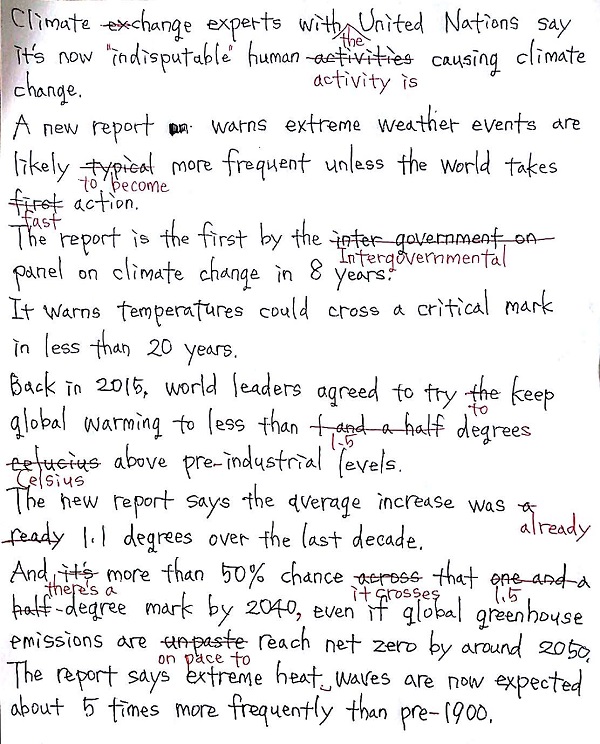 Climate exchange experts with United Nations say
the
it's now "indisputable" human activities causing climate
activity is
change.
A new report warns extreme weather events are
likely typical more frequent unless the world takes
to become
first action.
fast
The report is the first by the inter government on
Intergovernmental
panel on climate change in 8 years.
It warns temperatures could cross a critical mark
in less than 20 years.
Back in 2015, world leaders agreed to try the keep
to
global warming to less than 1 and a half degrees
1.5
celucius above pre-industrial levels.
Celsius
The new report says the average increase was a
already
ready 1.1 degrees over the last decade.
And, it's more than 50% chance across that one and a
there's a it crosses 1.5
half-degree mark by 2040, even if global greenhouse
emissions are unpaste reach net zero by around 2050.
on pace to
The report says extreme heat waves are now expected
about 5 times more frequently than pre-1900.